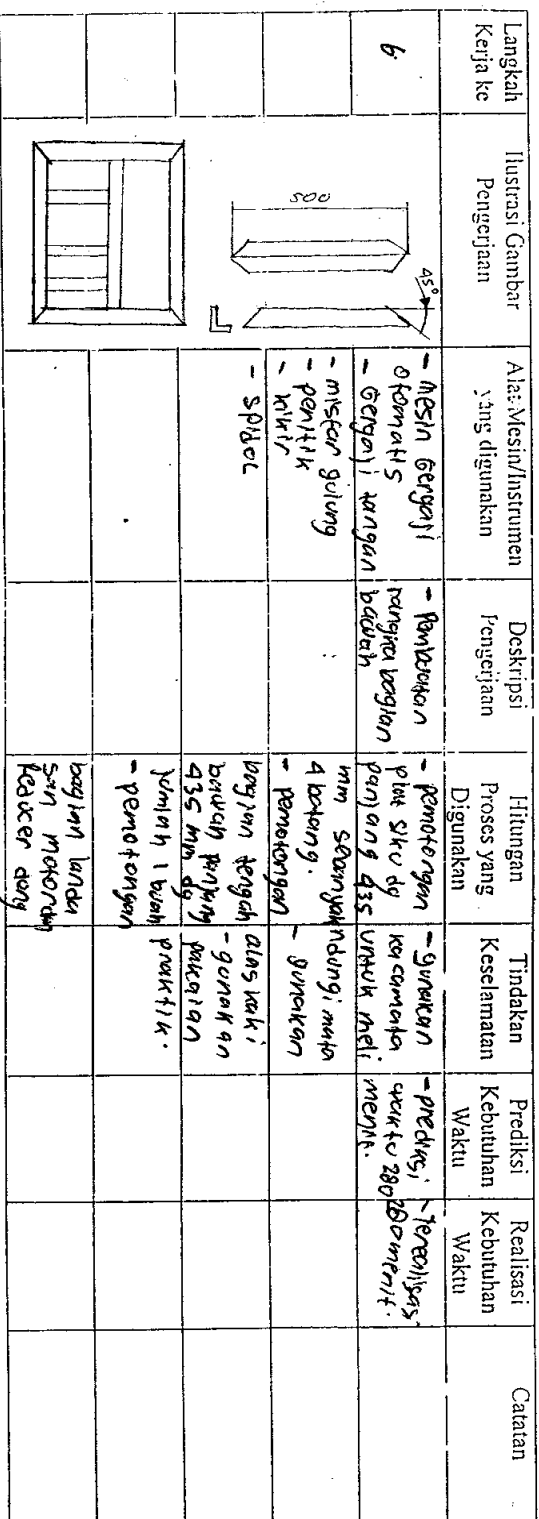 Langkah
Kerja ke
Ilustrasi Gambar
Pengerjaan
Alat/Mesin/Instrumen
yang digunakan
Deskripsi
Pengerjaan
Hitungan
Proses yang
Digunakan
Tindakan
Keselamatan
Prediksi
Kebutuhan
Waktu
Realisasi
Kebutuhan
Waktu
Catatan
6.
500
45°
- Mesin Gergaji
otomatis
- Gergaji tangan
- mistar gulung
- penitik
- kikir
- spidol
- Pembuatan
rangka bagian
bawah
- pemotongan
plat siku dg
panjang 435
mm sebanyak
4 batang.
- pemotongan
bagian tengah
bawah panjang
435 mm dg
jumlah 1 buah
- pemotongan
bagian landa
san motor dan
Reducer dang
- gunakan
kacamata
untuk meli
ndungi mata
- gunakan
alas kaki
- gunakan
pakaian
praktik.
- prediksi
waktu 280
menit.
- Terealisasi
menit.